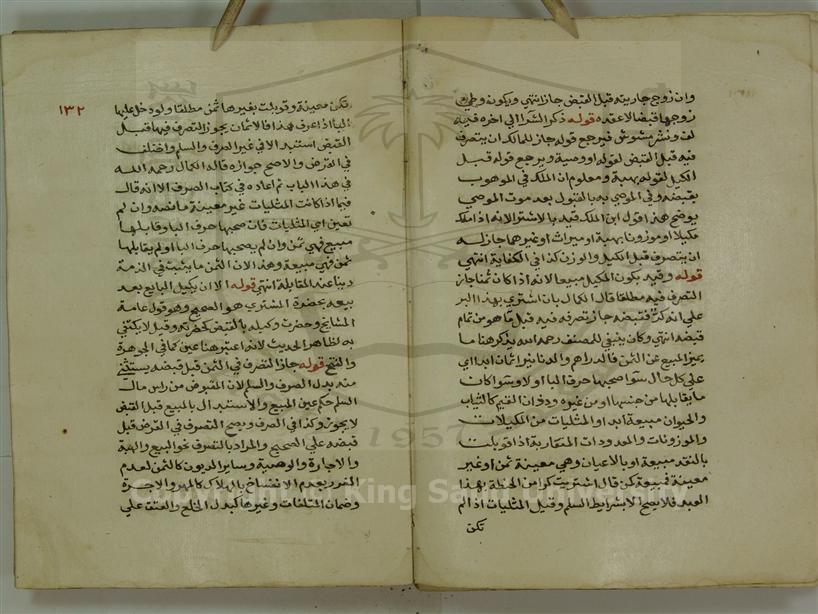 وان زوج جاريته قبل القبض جاز انتهي ويكون وطئ
زوجها قبضا لا عقده قوله ذكر الشرا الي اخره فيه
لف ونشر مشوش فيرجع قوله جاز للمالك ان يتصرف
فيه قبل القبض لقوله او وصية ويرجع قوله قبل
الكيل لقوله بهبة ومعلوم ان الملك في الموهوب
بقبضه وفي الموصي به بالقبول بعد موت الموصي
يوضح هذا قول ابن الملك قيد بالاشترا لانه اذا ملك
مكيلا او موزونا بهبة او ميراث او غيرهما جاز له
ان يتصرف قبل الكيل والوزن كذا في الكفاية انتهي
قوله وقيد بكون المكيل مبيعا لانه اذا كان ثمنا جاز
التصرف فيه مطلقا قال الكمال بان اشتري بهذا البر
علي انه كر فقبضه جاز تصرفه فيه قبل ما هو من تمام
قبضه انتهي وكان ينبغي للمصنف رحمه الله يذكر هنا ما
يميز المبيع عن الثمن فالدراهم والدنانير اثمان ابدا اي
علي كل حال سوا صحبها حرف البا او لا وسوا كان
ما يقابلها من جنسها او من غيره وذوات القيم كالثياب
والحيوان مبيعة ابدا و المثليات من المكيلات
والموزونات والمعدودات المتقاربة اذا قوبلت
بالنقد مبيعة او بالاعيان وهي معينة ثمن او غير
معينة فمبيعة كمن قال اشتريت كرا من الحنطة بهذا
العبد فلا يصح الا بشرايط السلم وقيل المثليات اذا لم
تكن
١٣٢
تكن معينة وقوبلت بغيرها ثمن مطلقا ولو دخل عليها
البا اذا عرف هذا فالاثمان يجوز التصرف فيها قبل
القبض استبدالا في غير الصرف والسلم واختلف
في القرض والاصح جوازه قاله الكمال رحمه الله
في هذا الباب ثم اعاده في كتاب الصرف الا انه قال
فيما اذا كانت المثليات غير معينة ما نصه وان لم
تعين اي المثليات فان صحبها حرف البا وقابلها
مبيع فهي ثمن وان لم يصحبها حرف البا ولم يقابلها
ثمن فهي مبيعة وهذا لان الثمن ما يثبت في الذمة
دينا عند المقابلة انتهي قوله الا ان يكيل البايع بعد
بيعه بحضرة المشتري هو الصحيح وهو قول عامة
المشايخ وحضرت وكيله بالقبض كحضرته وقيل لا يكتفي
به لظاهر الحديث لانه اعتبر صاعين كما في الجوهرة
والفتح قوله جاز التصرف في الثمن قبل قبضه يستثني
منه بدل الصرف والسلم لان المقبوض من راس مال
السلم حكم عين المبيع والاستبدال بالمبيع قبل القبض
لا يجوز وكذا في الصرف ويصح التصرف في القرض قبل
قبضه علي الصحيح والمراد بالتصرف نحو البيع والهبة
والاجارة والوصية وساير الديون كالثمن لعدم
الغرر بعدم الانفساخ بالهلاك كالمهر والاجرة
وضمان المتلفات وغيرها كبدل الخلع والعتق علي
1957
Copyright © King Saud University